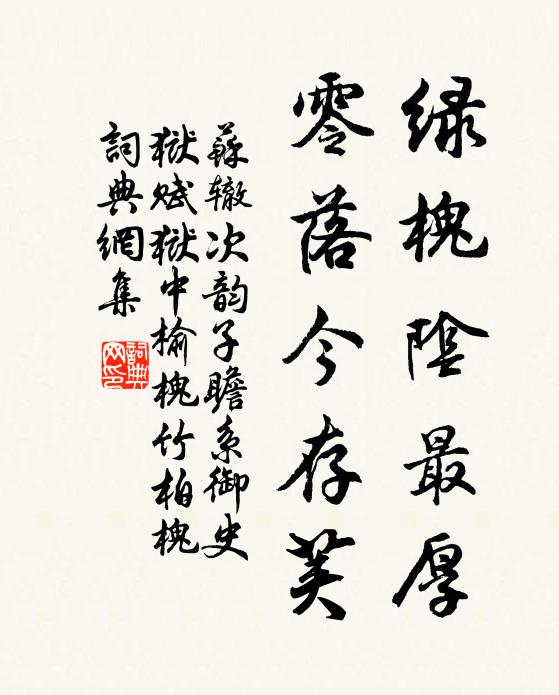 绿槐陰最厚
零落今存荚
蘇辙次韵子瞻系御史
獄赋獄中榆槐竹柏槐
詞典網集
詞典网印